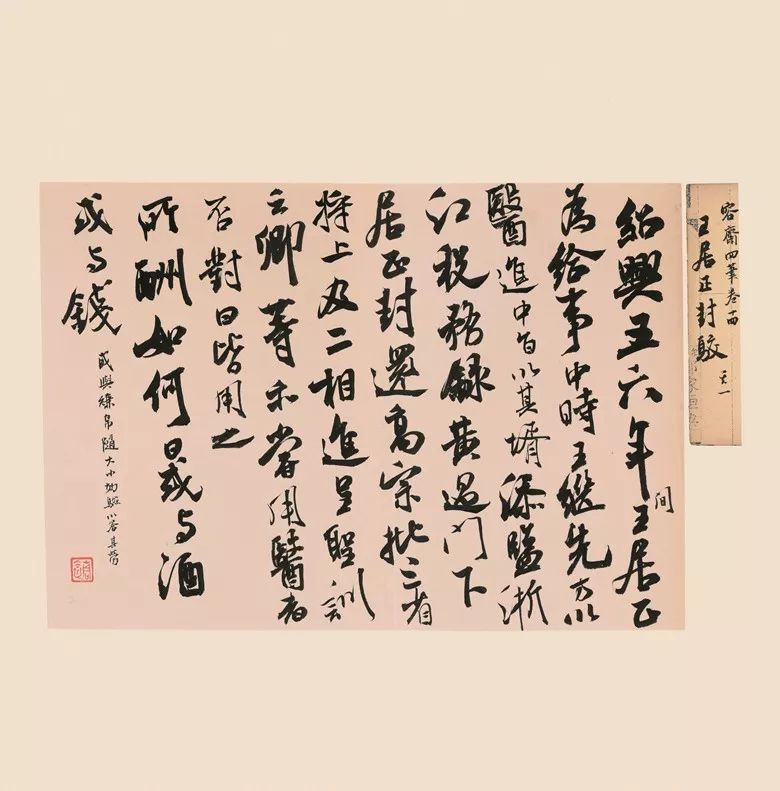 容齋四筆卷十四
王居正封駮
紹興五六年間王居正
為給事中時王繼先方以
醫進中旨以其壻添監浙
江稅務錄黃過門下
居正封還高宗批三省
將上及二相進呈聖訓
云卿等亦嘗用醫者
否對曰皆用之
所酬如何曰或与酒
或与錢
或與縑帛隨大小効驗以答其勞